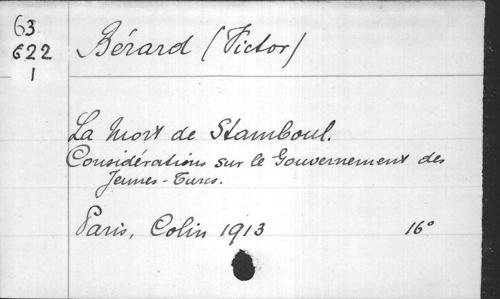 63
622
1
Bérard (Victor)
La Mort de Stamboul.
Considérations sur le Gouvernement des
Jeunes-Turcs.
Paris, Colin 1913 16°